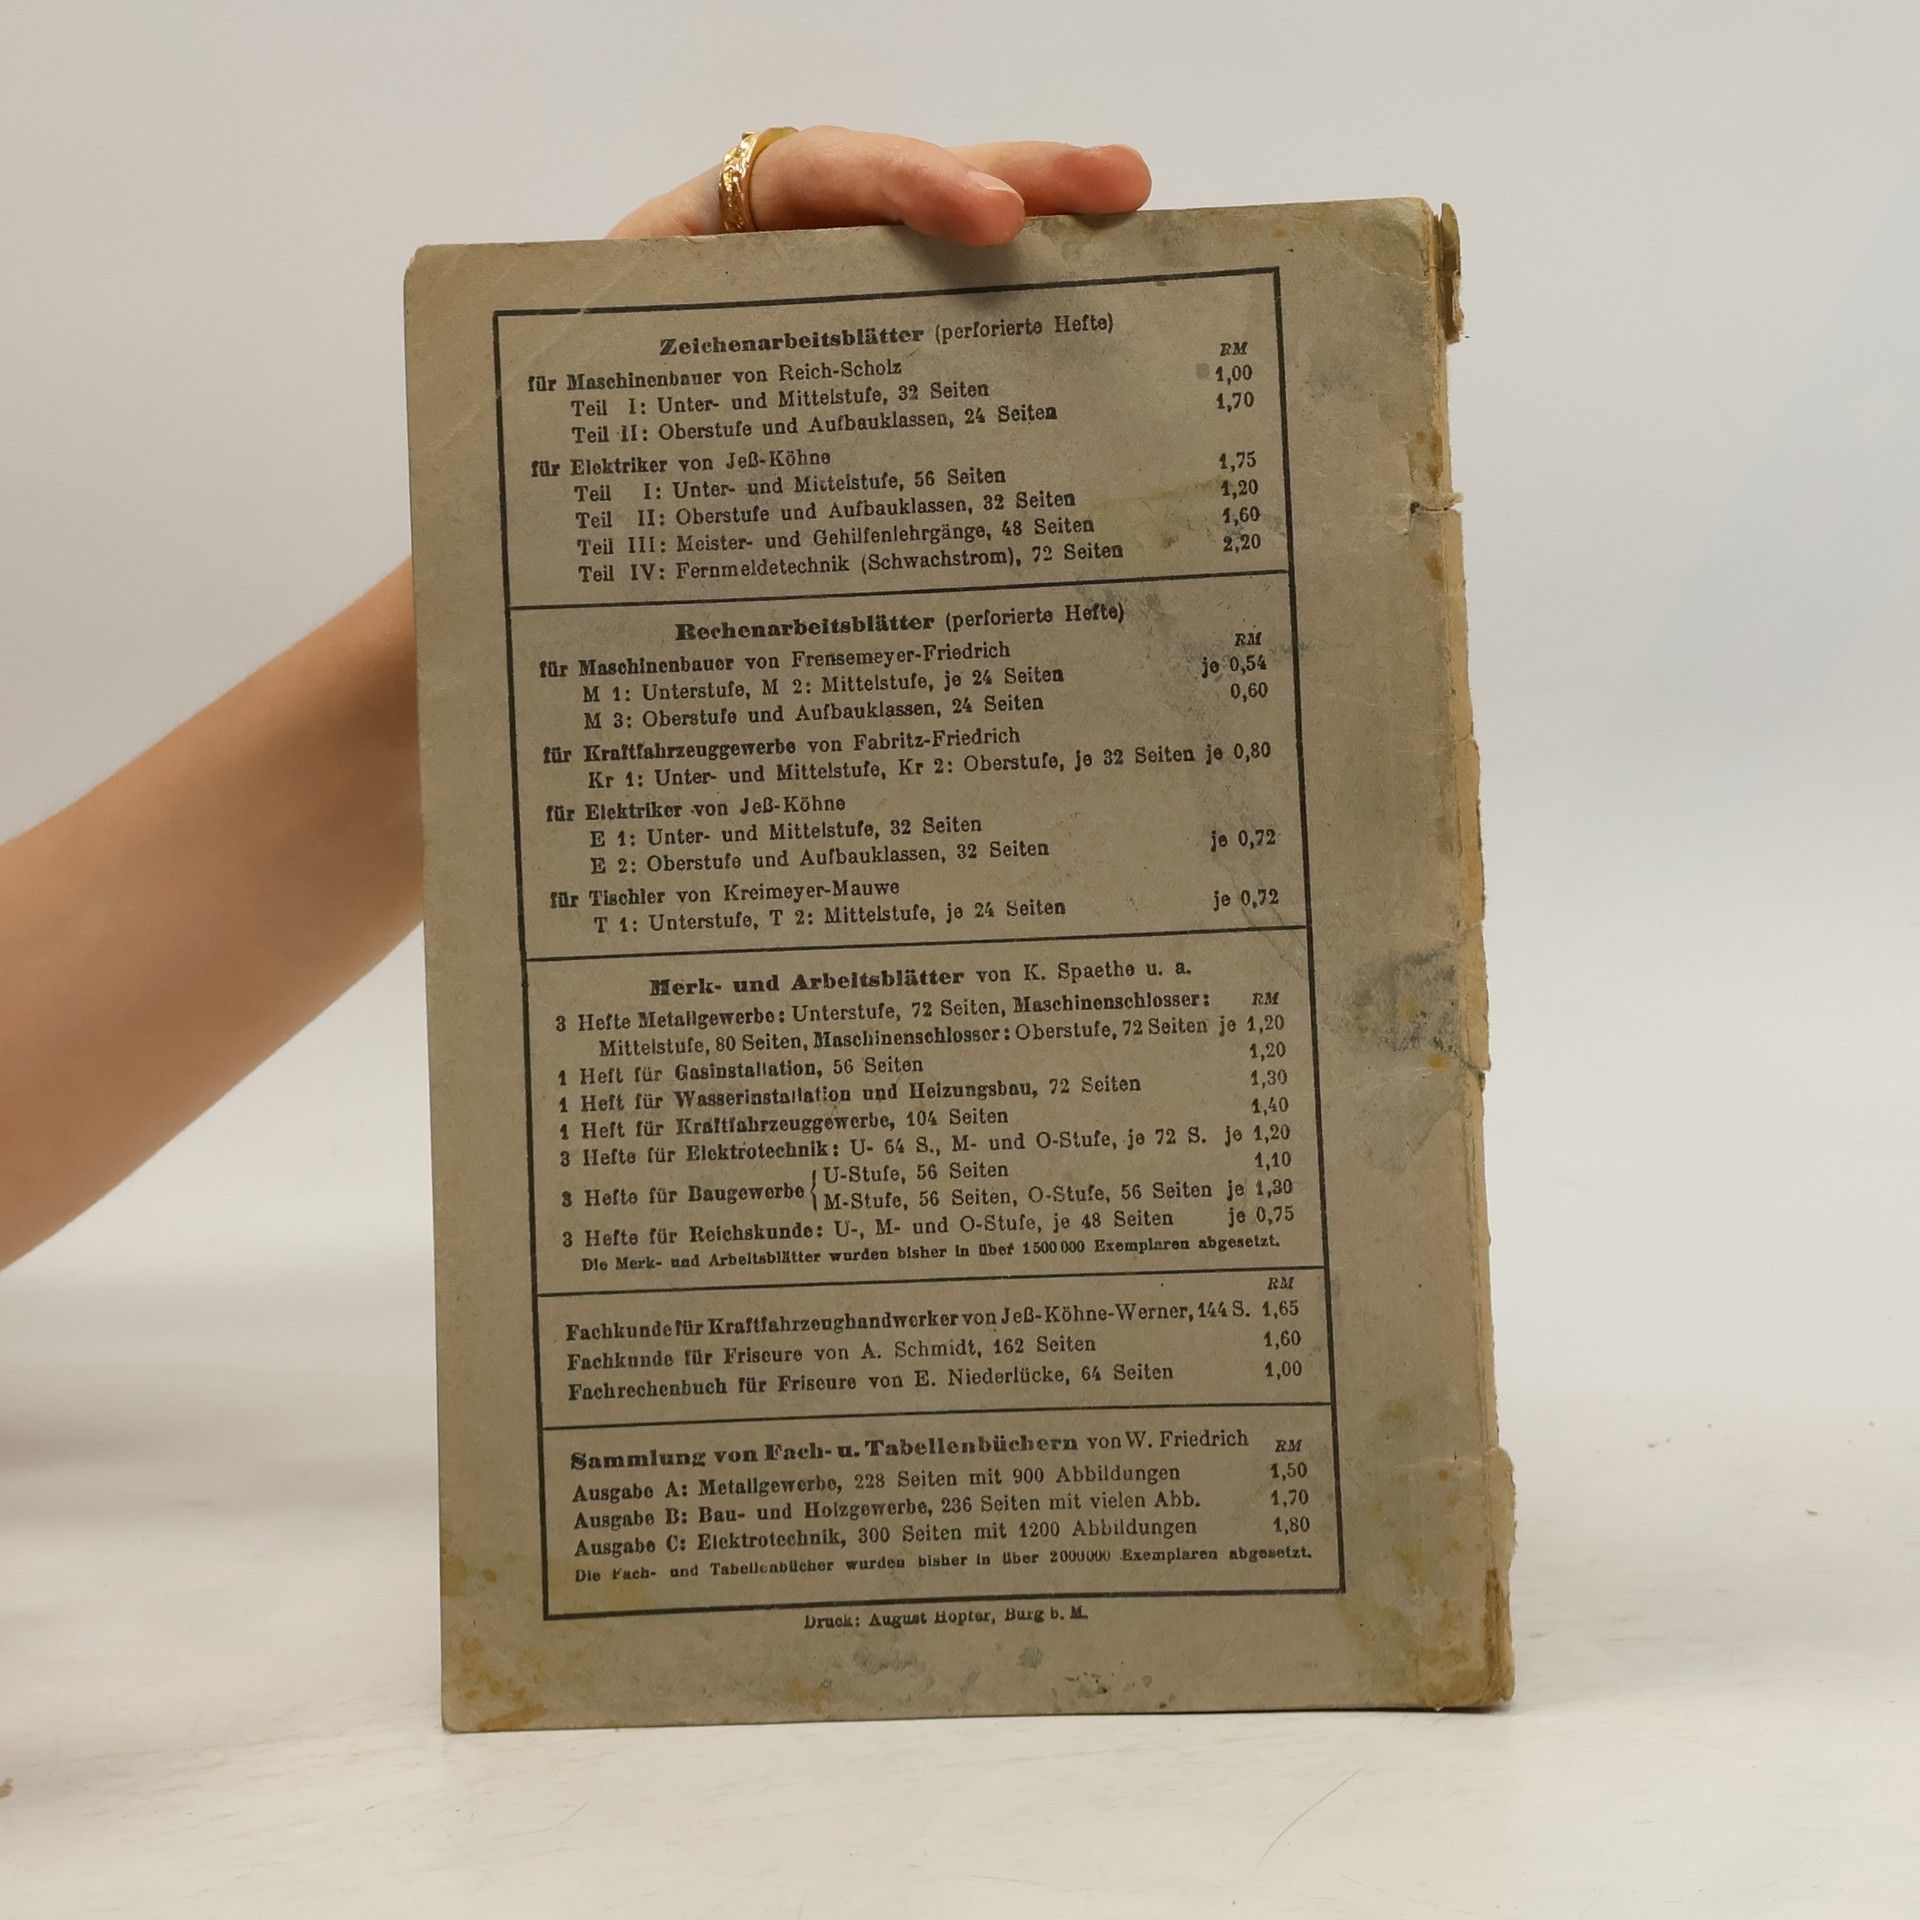 Zeichenarbeitsblätter (perforierte Hefte)
RM
für Maschinenbauer von Reich-Scholz
Teil I: Unter- und Mittelstufe, 32 Seiten 1,00
Teil II: Oberstufe und Aufbauklassen, 24 Seiten 1,70
für Elektriker von Jeß-Köhne
Teil I: Unter- und Mittelstufe, 56 Seiten 1,75
Teil II: Oberstufe und Aufbauklassen, 32 Seiten 1,20
Teil III: Meister- und Gehilfenlehrgänge, 48 Seiten 1,60
Teil IV: Fernmeldetechnik (Schwachstrom), 72 Seiten 2,20
Rechenarbeitsblätter (perforierte Hefte)
RM
für Maschinenbauer von Frensemeyer-Friedrich
M 1: Unterstufe, M 2: Mittelstufe, je 24 Seiten je 0,54
M 3: Oberstufe und Aufbauklassen, 24 Seiten 0,60
für Kraftfahrzeuggewerbe von Fabritz-Friedrich
Kr 1: Unter- und Mittelstufe, Kr 2: Oberstufe, je 32 Seiten je 0,80
für Elektriker von Jeß-Köhne
E 1: Unter- und Mittelstufe, 32 Seiten
E 2: Oberstufe und Aufbauklassen, 32 Seiten je 0,72
für Tischler von Kreimeyer-Mauwe
T 1: Unterstufe, T 2: Mittelstufe, je 24 Seiten je 0,72
Merk- und Arbeitsblätter von K. Spaethe u. a.
3 Hefte Metallgewerbe: Unterstufe, 72 Seiten, Maschinenschlosser: RM
Mittelstufe, 80 Seiten, Maschinenschlosser: Oberstufe, 72 Seiten je 1,20
1 Heft für Gasinstallation, 56 Seiten 1,20
1 Heft für Wasserinstallation und Heizungsbau, 72 Seiten 1,30
1 Heft für Kraftfahrzeuggewerbe, 104 Seiten 1,40
3 Hefte für Elektrotechnik: U- 64 S., M- und O-Stufe, je 72 S. je 1,20
3 Hefte für Baugewerbe { U-Stufe, 56 Seiten 1,10
M-Stufe, 56 Seiten, O-Stufe, 56 Seiten je 1,30
3 Hefte für Reichskunde: U-, M- und O-Stufe, je 48 Seiten je 0,75
Die Merk- und Arbeitsblätter wurden bisher in über 1500000 Exemplaren abgesetzt.
RM
Fachkunde für Kraftfahrzeughandwerker von Jeß-Köhne-Werner, 144 S. 1,65
Fachkunde für Friseure von A. Schmidt, 162 Seiten 1,60
Fachrechenbuch für Friseure von E. Niederlücke, 64 Seiten 1,00
Sammlung von Fach- u. Tabellenbüchern von W. Friedrich RM
Ausgabe A: Metallgewerbe, 228 Seiten mit 900 Abbildungen 1,50
Ausgabe B: Bau- und Holzgewerbe, 236 Seiten mit vielen Abb. 1,70
Ausgabe C: Elektrotechnik, 300 Seiten mit 1200 Abbildungen 1,80
Die Fach- und Tabellenbücher wurden bisher in über 2000000 Exemplaren abgesetzt.
Druck: August Hopfer, Burg b. M.